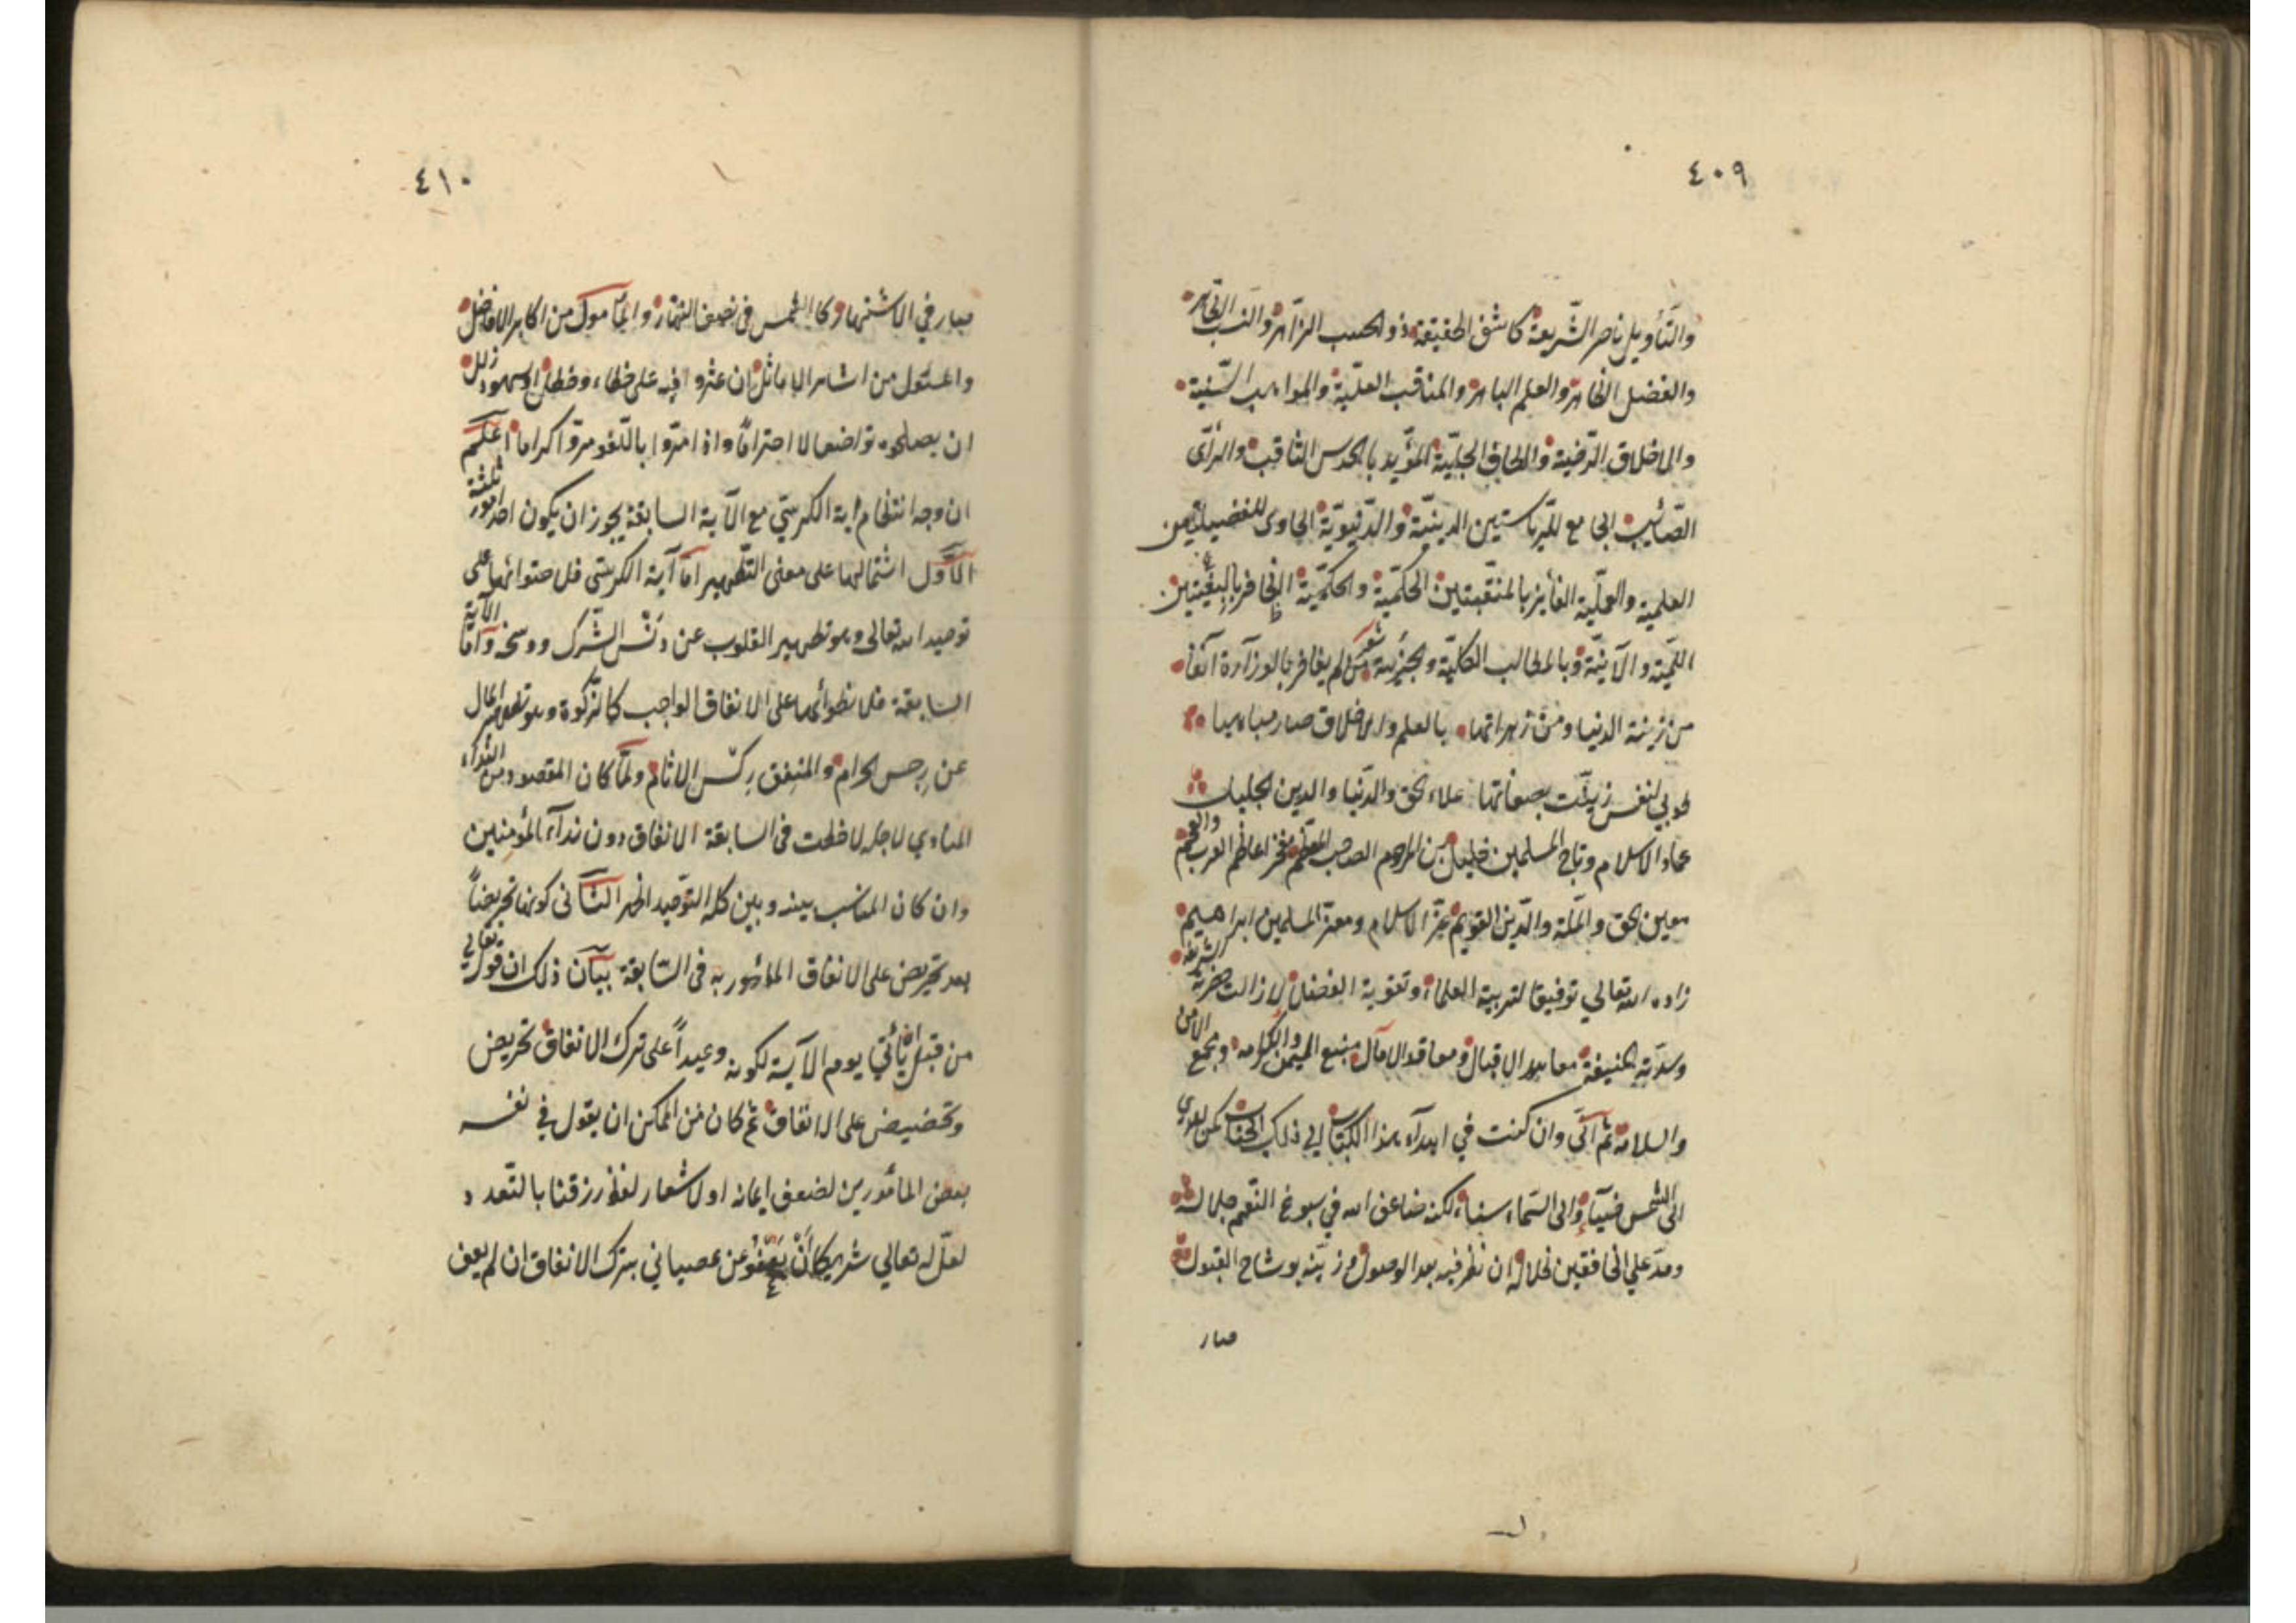 ٤٠٩
والتأويل ناصر الشّريعة كاشف الحقيقة ذو الحسب الزّاهر والنسب الطّاهر
والفضل الظاهر والعلم الباهر والمناقب العلّية والمواهب السّنية
والاخلاق الرّضية والطاف الجليّة المؤيد بالحدس الثاقب والرأى
الصّائب الجامع للرّياستين الدينيّة والدّنيويّة الحاوى للفضيلتين
العلمية والعمليّة الفائز بالمنقبتين الحكميّة والحكميّة الظافر بالبغيتين
اللميّة والآنيّة وبالمطالب الكليّة والجزئية شعر من لم يفاخر بالوزارة آنفا
من زينة الدنيا ومن زهراتها بالعلم والاخلاق صار مباهيا
طوبي لنفس زيّنت بصفاتها علاء الحق والدّنيا والدين
عماد الاسلام وتاج المسلمين خليل بن المرحوم الصاحب المعظّم مفخر اعاظم العرب والعجم
معين الحق والملّة والدّين القويم عزّ الاسلام ومعزّ المسلمين ابراهيم
زاده الله تعالي توفيقا لتربية العلماء وتقوية الفضلاء لا زالت حضرته الشريفة
وسدّته المنيفة معاهد الاقبال ومعاقد الآمال منبع الميمن والكرامة ومجمع الامن
والسلامة ثم انّى وان كنت في اهداء هذا الكتاب الي ذلك الجناب كمن يهدي
الى الشمس ضياء والى السّماء سناء لكنه ضاعف الله في سبوغ النّعم جلاله
ومدّ علي الخافقين ظلاله ان نظر فيه بعد الوصول وزيّنه بوشاح القبول
صار
٤١٠
صار في الاشتهار كالشمس فى نصف النهار والمأمول من اكابر الافاضل
والمسئول من اشاهر الاماثل ان عثروا فيه على خطاء وخطل او سهو وزلل
ان يصلحوه تواضعا لا احتراما واذا مرّوا باللّغو مرّوا كراما اعلم
ان وجه انتظام اية الكرسيّ مع الآية السابقة يجوز ان يكون احد امور ثلثة
الاوّل اشتمالهما على معنى التّطهير امّا آية الكرسّى فلاحتوائها على
توحيد الله تعالى وهو تطهير القلوب عن دنس الشّرك ووسخه وامّا الآية
السابقة فلانطوائها على الانفاق الواجب كالزّكوة وهو تطهير المال
عن رجس الحرام والمنفق ركس الاثام ولمّا كان المقصود من النّداء
المنادي لاجله لاحظت فى السابقة الانفاق دون نداء المؤمنين
وان كان المناسب بينه وبين كلمة التوّحيد اظهر الثّانى كونها تحريضاً
بعد تحريض على الانفاق المأمور به فى السّابقة بيان ذلك ان قوله تعالي
من قبل ان يأتي يوم الآية لكونه وعيداً على ترك الانفاق تحريض
وتحضيض على الانفاق ثم كان من الممكن ان يقول في نفسه
بعض المأمورين لضعف ايمانه او لاشعار لفظ رزقنا بالتّعدد
لعلّ له تعالي شريكا أنْ يعفو عن عصياني بترك الانفاق ان لم يعف